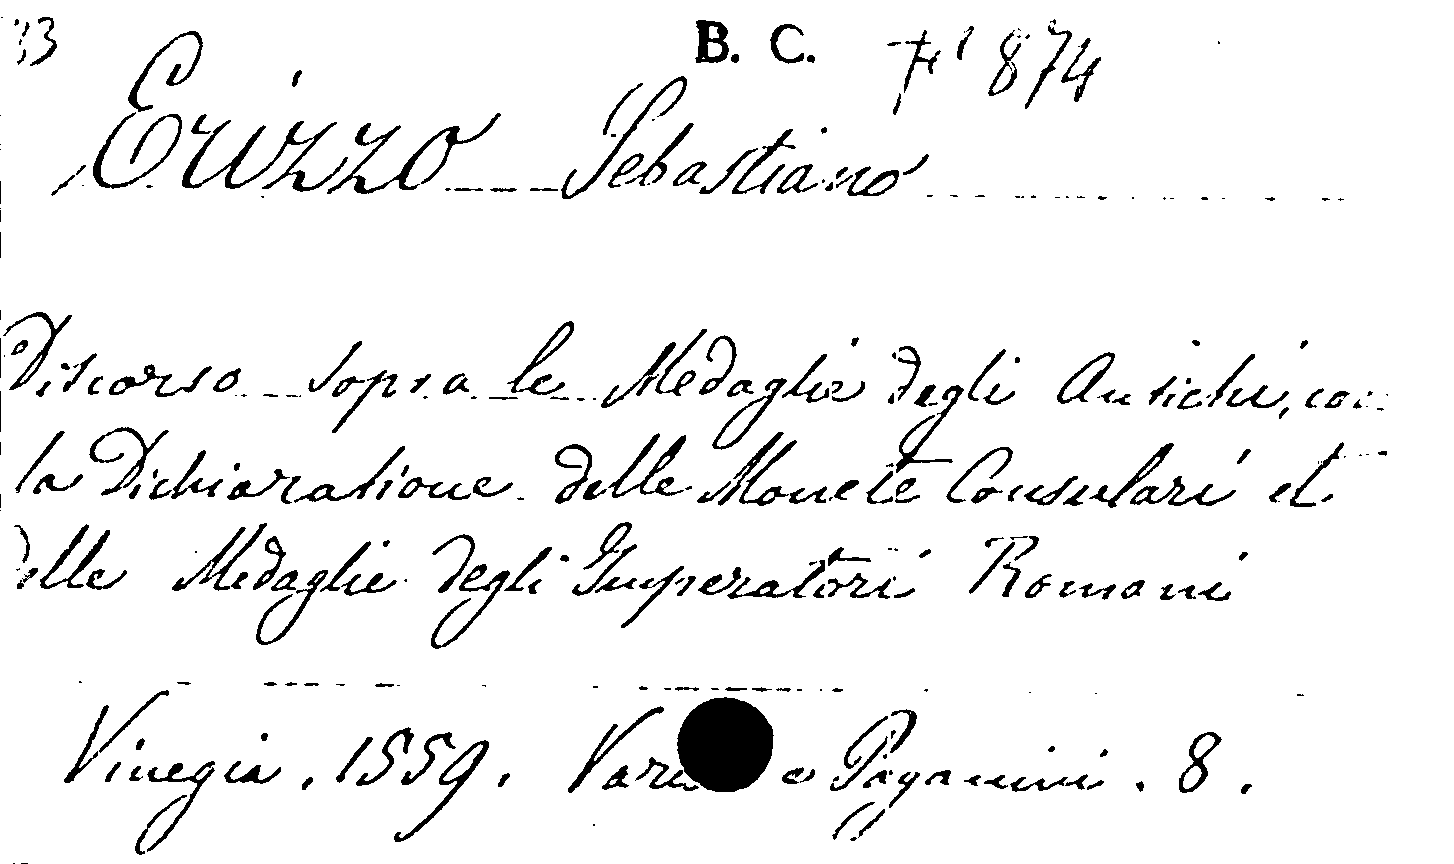 33 B. C. F 874
Erizzo Sebastiano
Discorso sopra le Medaglie degli Antichi, con
la Dichiaratione delle Monete Consulari et
delle Medaglie degli Imperatori Romani
Vinegia. 1559. e Paganini. 8.